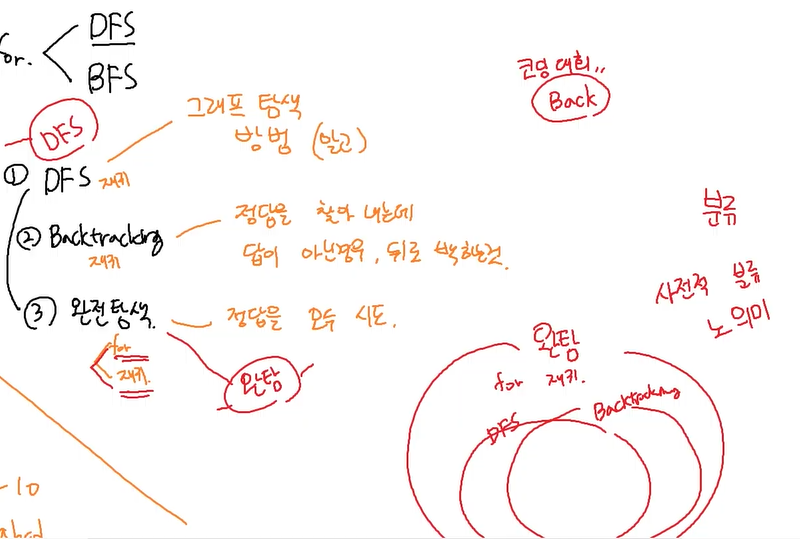 DFS
for.
BFS
코딩 대회..
Back
DFS
그래프 탐색
방법 (알고)
① DFS 재귀
② Backtracking
재귀
정답을 찾아 내는데
답이 아닌경우, 뒤로 백하는것.
③ 완전탐색.
정답을 모두 시도.
for
재귀.
완탐
분류
사전적 분류
노의미
완탐
for 재귀.
DFS
Backtracking
-10